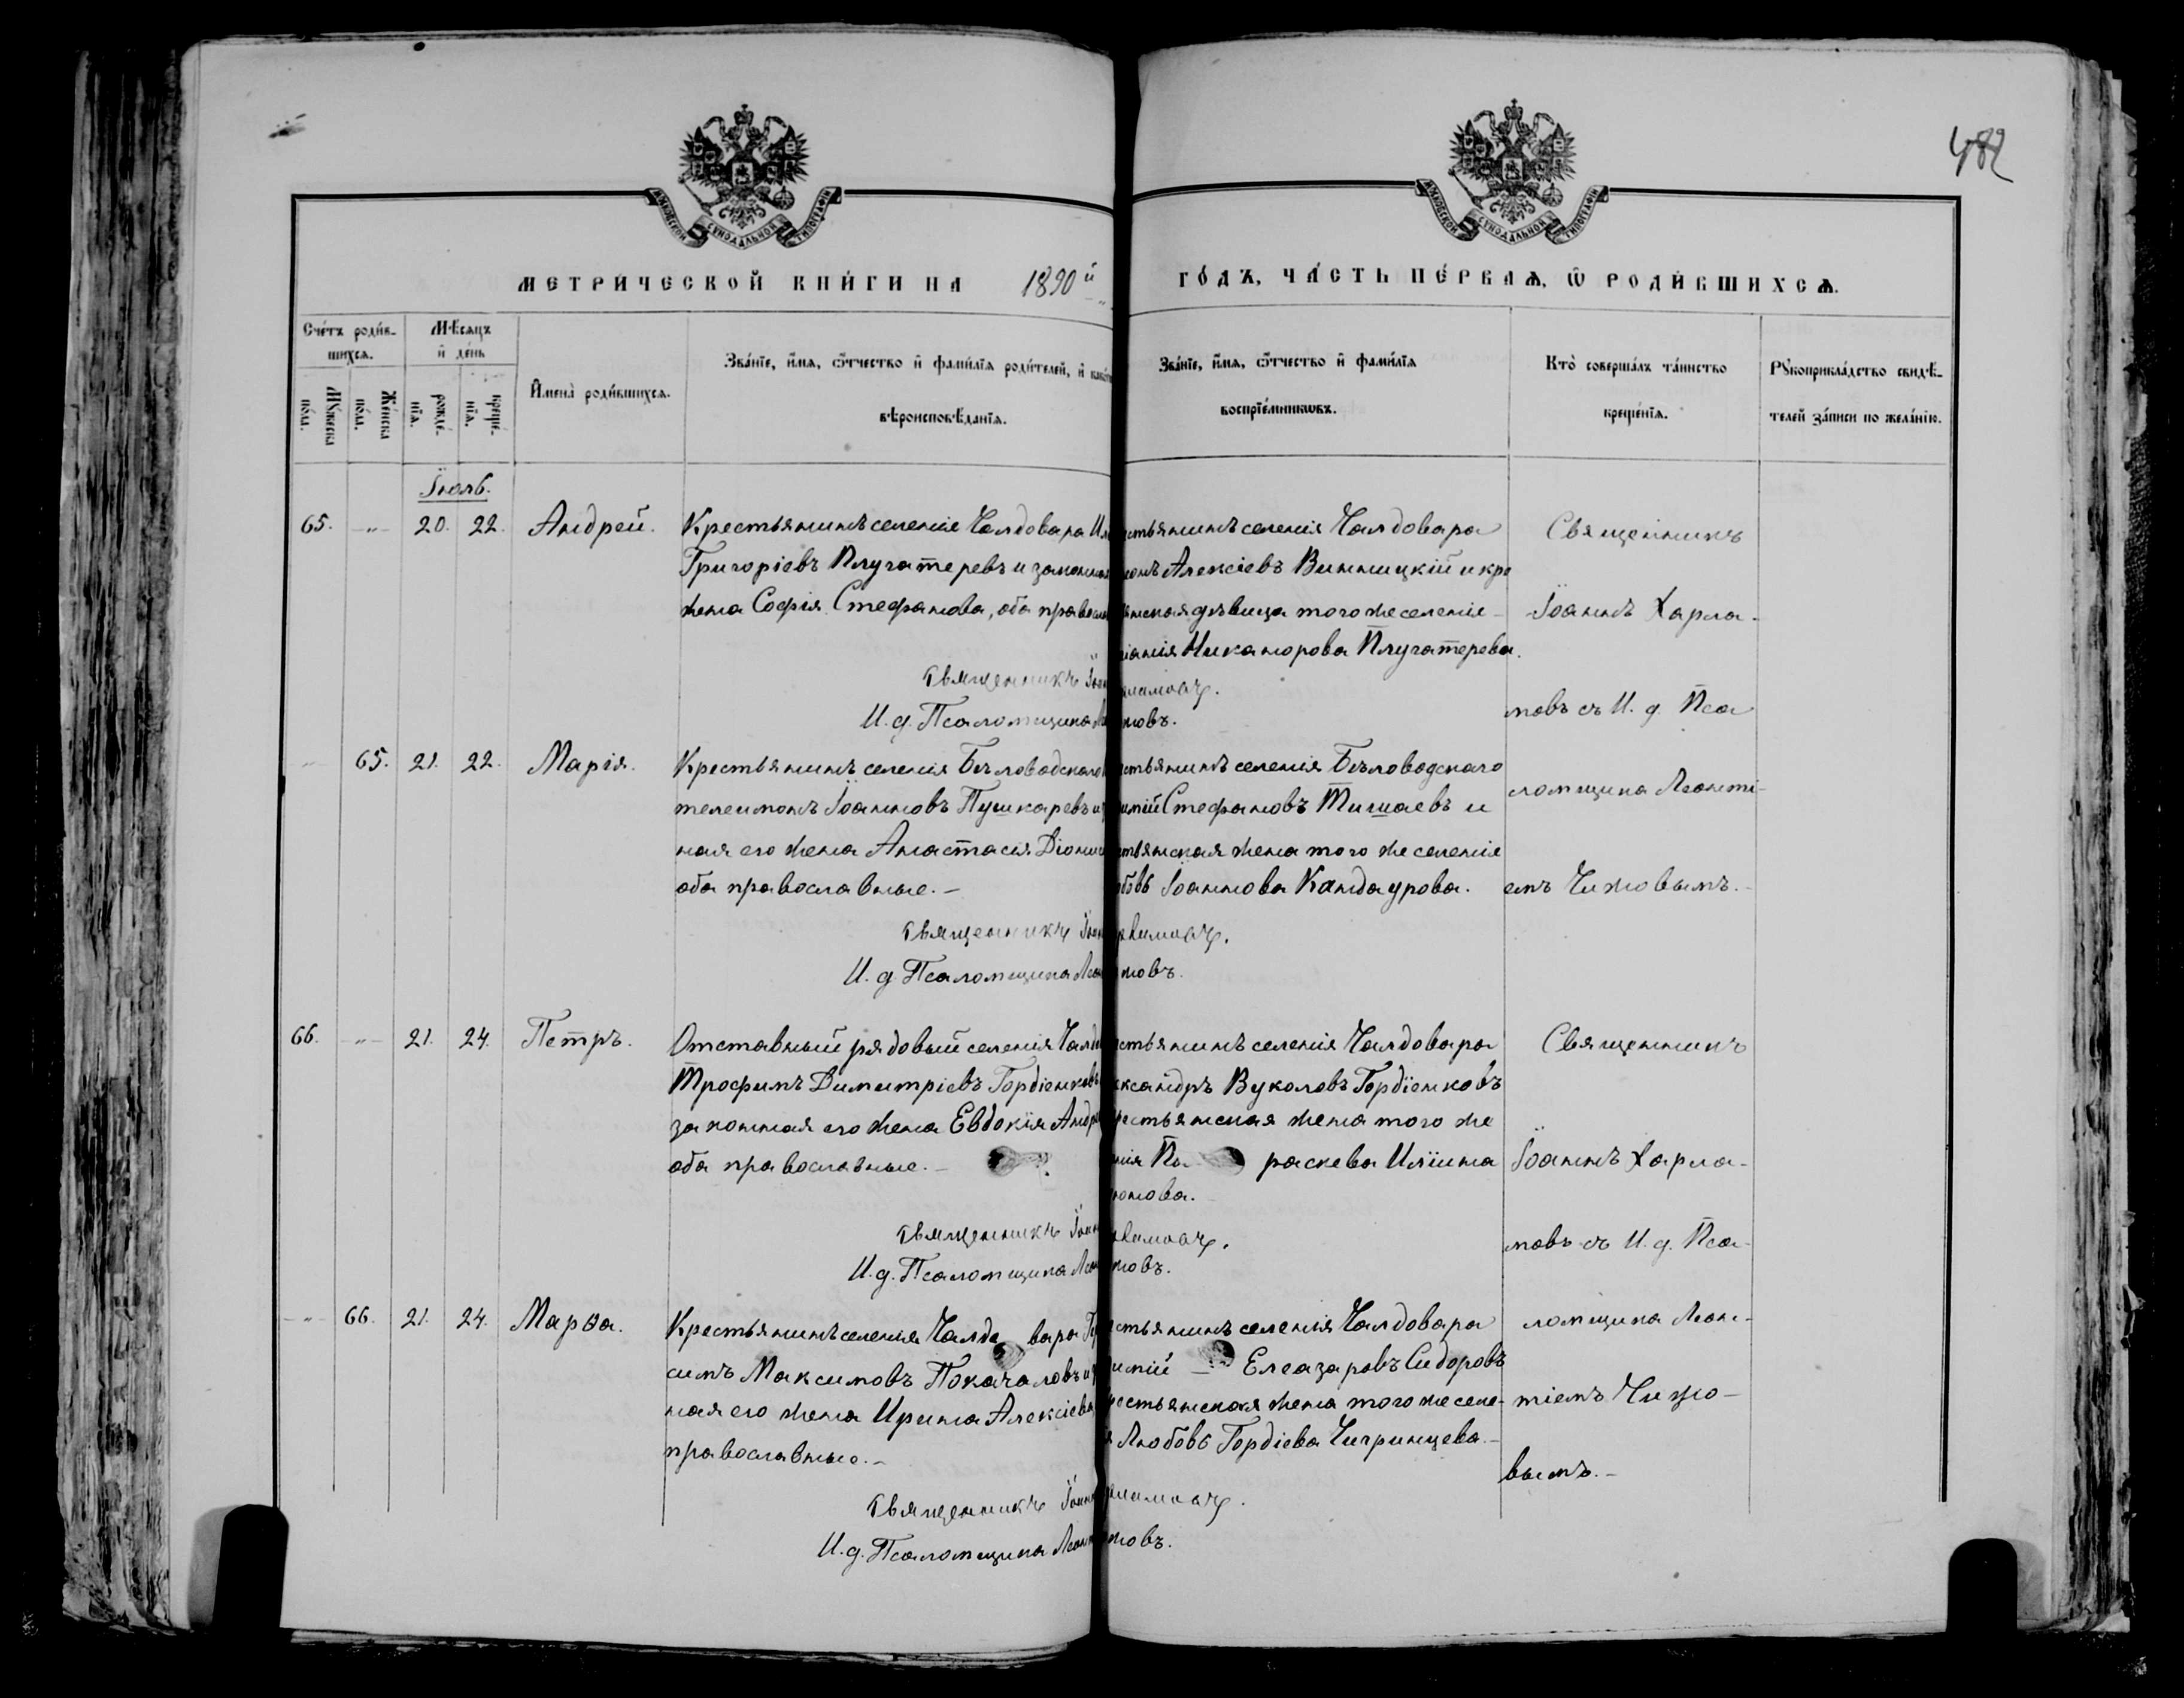 482
МЕТРИ́ЧЕСКОЙ КНИ́ГИ НА 1890й
ГО́ДЪ, ЧА́СТЬ ПЕ́РВАѦ, Ѿ РОДИ́ВШИХСѦ.
Сче́тъ роди́вшихсѧ.
Мꙋ́жеска по́ла.
Же́нска по́ла.
Мѣ́сѧцъ и҆ де́нь
рожде́нїѧ.
креще́нїѧ.
И҆мена̀ роди́вшихсѧ.
Зва́нїе, и҆́мѧ, ѻ҆́тчество и҆ фами́лїѧ роди́телей, и҆
вѣроисповѣ́данїѧ.
Зва́нїе, и҆́мѧ, ѻ҆́тчество и҆ фами́лїѧ
воспрїе́мникѡвъ.
Кто̀ соверша́лъ та́инство
креще́нїѧ.
Рꙋкоприкла́дство свидѣ́-
телей за́писи по жела́нїю.
Іюль.
65. -"- 20. 22. Андрей.
Крестьянинъ селенія Чалдовара
Григоріевъ Плугатеревъ и законная
жена Софія Стефанова, оба православ
Священникъ Іоан
И. д. Псаломщика Ле
стьянинъ селенія Чалдовара
Алексіевъ Винницкій и кре
янская дѣвица того же селенія
Никанорова Плугатерева.
ламповъ.
жовъ.
Священникъ
Іоаннъ Харла-
мовъ съ И. д. Пса
ломщика Леонті-
емъ Чижовымъ.-
-"- 65. 21. 22. Марія.
Крестьянинъ селенія Бѣловодскаго
телеимонъ Іоанновъ Пушкаревъ и
ная его жена Анастасія Діониси
оба православные.-
Священникъ Іоан
И. д Псаломщика Лео
стьянинъ селенія Бѣловодскаго
Стефановъ Тишаевъ и
стьянская жена того же селенія
бовь Іоаннова Кандаурова.
жовъ.
66. -"- 21. 24. Петръ.
Отставный рядовый селенія Чалдо
Трофимъ Димитріевъ Гордіенковъ
законная его жена Евдокія Андре
оба православные.-
Священникъ Іоан
И. д. Псаломщика Лео
стьянинъ селенія Чалдовара
ександръ Вуколовъ Гордіенковъ
рестьянская жена того же
нія Па раскева Иліина
нова.
жовъ.
Священникъ
Іоаннъ Харла-
мовъ съ И. д. Пса-
ломщика Леон-
тіемъ Чижо-
вымъ.-
-"- 66. 21. 24. Марѳа.
Крестьянинъ селенія Чалдо вара Ге
симъ Максимовъ Покачаловъ и
ная его жена Ирина Алексіева
православные.-
Священникъ Іоанн
И. д. Псаломщика Леон
стьянинъ селенія Чалдовара
Елеазаровъ Сидоровъ
рестьянская жена того же селе-
я Любовь Гордіева Чигринцева.-
жовъ.